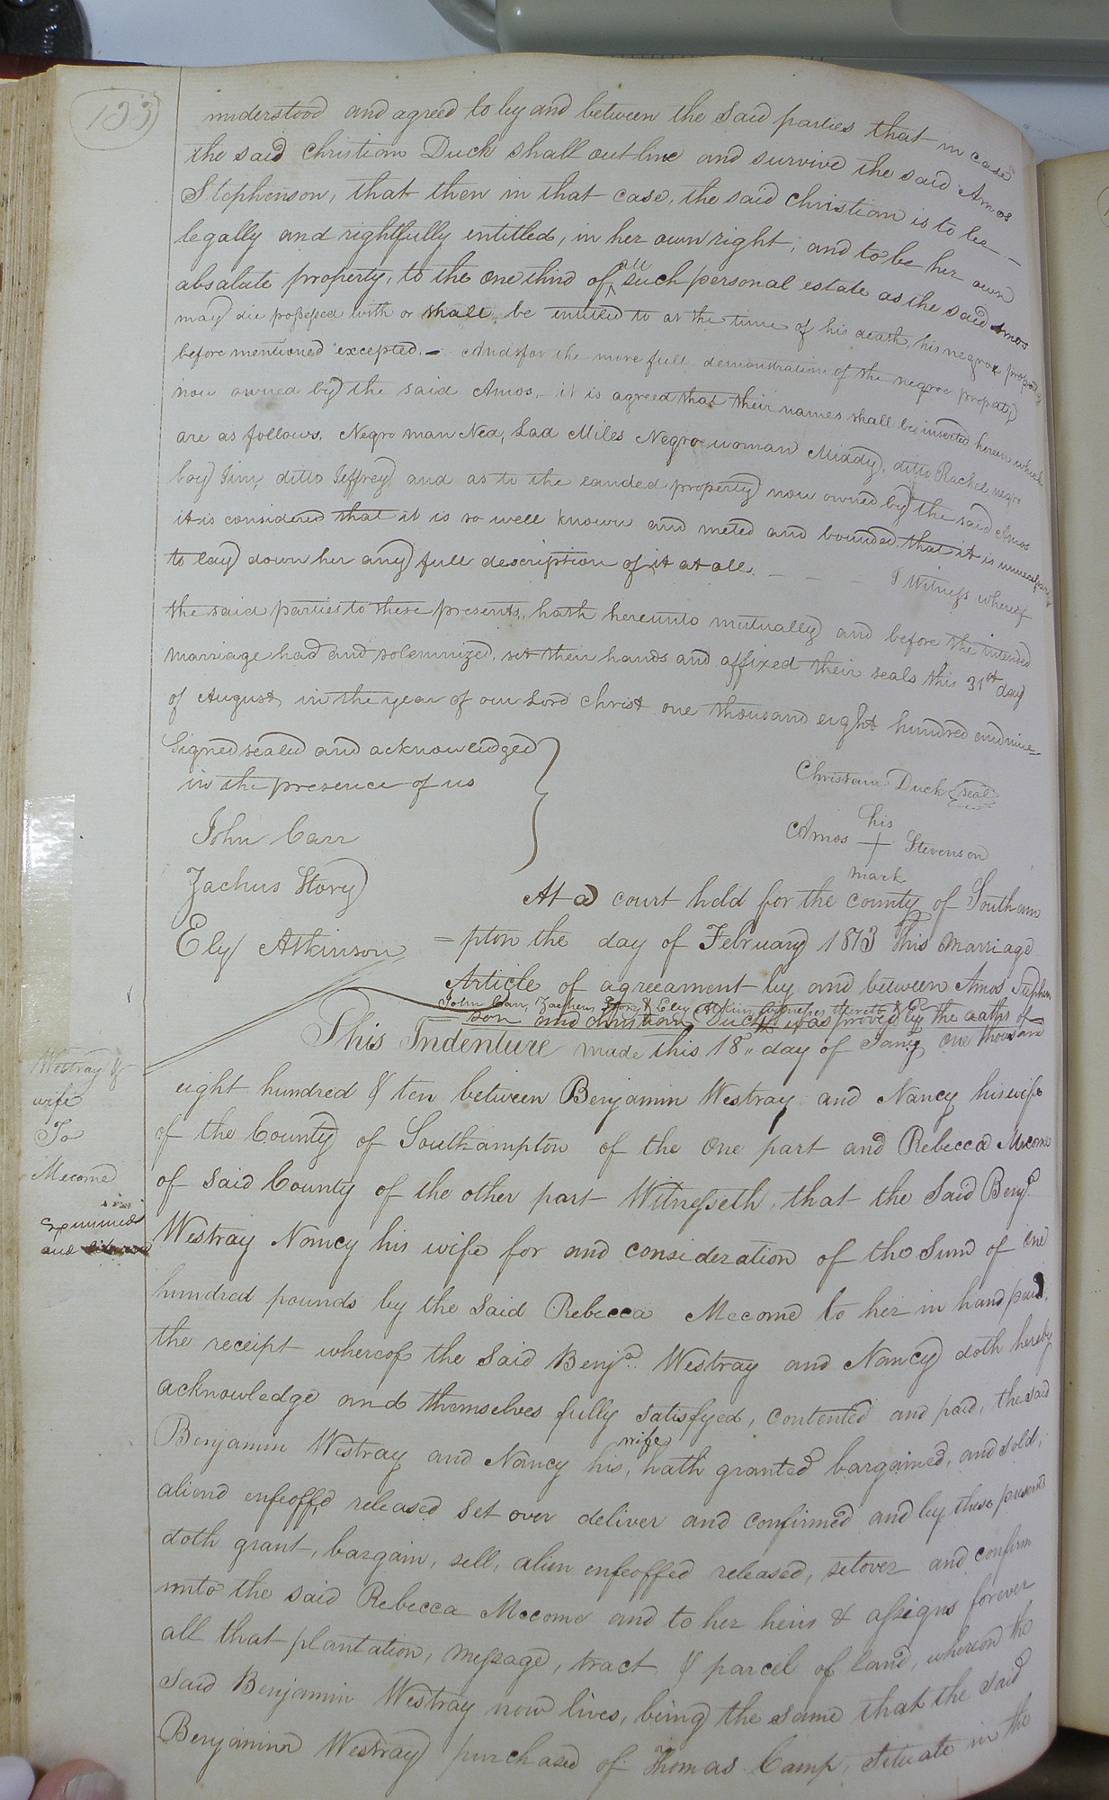 133
understood and agreed to by and between the said parties that in case
the said Christian Duck shall out live and survive the said Amos
Stephenson, that then in that case, the said Christian is to be -
legally and rightfully entitled, in her own right, and to be her own
absalute property, to the one third of all such personal estate as the said Amos
may die possessed with or shall be entitled to at the time of his death, his negroe property
before mentioned excepted. - And for the more full demonstration of the negroe property
now owned by the said Amos, it is agreed that their names shall be inserted herein which
are as follows, Negro man Ned, Lad Miles Negroe woman Middy, ditto Rachel, negro
boy Jim, ditto Jeffrey and as to the landed property now owned by the said Amos
it is considered that it is so well known and meted and bounded, that it is unnecessary
to lay down her any full description of it at all. - - - I Witness whereof
the said parties to these presents, hath hereunto mutually and before the intended
marriage had and solemnized, set their hands and affixed their seals this 31st day
of August in the year of our Lord Christ one thousand eight hundred and nine -
Signed sealed and acknowledged
in the presence of us
Christian Duck {seal}
John Carr
his
Amos + Stevenson
mark
Zachus Story
Ely Atkinson
At a court held for the county of Southam
= pton the day of February 1813 This marriage
Article of agreeament by and between Amos Stephen
John Carr, Zacheus Story & Ely Atkins witnesses thereto &c
= son and Christian Duck was proved by the oaths of
This Indenture made this 18th day of Jany one thousand
eight hundred & ten between Benjamin Westray and Nancy his wife
Westray &
wife
To
Mecome
of the County of Southampton of the one part and Rebecca Mecome
of said County of the other part Witnesseth, that the said Benja
Examined
and
Westray Nancy his wife for and consideration of the Sum of one
hundred pounds by the said Rebecca Mecome to her in hand paid,
the receipt whereof the said Benja Westray and Nancy doth hereby
acknowledge and themselves fully satisfyed, contented and paid, the said
Benjamin Westray and Nancy his wife, hath granted bargained, and sold,
aliend enfeoff'd released set over deliver and confirmed and by these presents
doth grant, bargain, sell, alien enfeoffed released, setover and confirm
unto the said Rebecca Mecome and to her heirs & assigns forever
all that plantation, message, tract & parcel of land, whereon the
said Benjamin Westray now lives, being the same that the said
Benjamin Westray purchased of Thomas Camp, situate in the